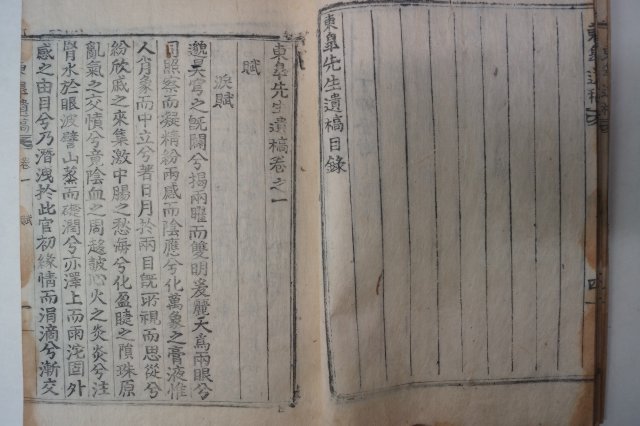 東皐先生遺稿目錄
東皐先生遺稿卷之一
賦
淚賦
邈昊穹之旣闢兮揭兩曜而雙明爰麗天爲兩眼兮
同照察而凝精紛兩感而陰應兮化萬象之膏液惟
人肖象而中立兮著日月於兩目旣所視而思從兮
紛放戚之來集激中腸之愁每兮化盈睫之隕珠原
亂氣之交憤兮竟陰血之周 心火之炎炎兮注
腎水於眼波譬山蒸而礎潤兮亦澤上而雨 外
感之由目兮乃潛洩於此官初緣情而涓滴兮漸交
東皐遺稿 卷一 賦 一